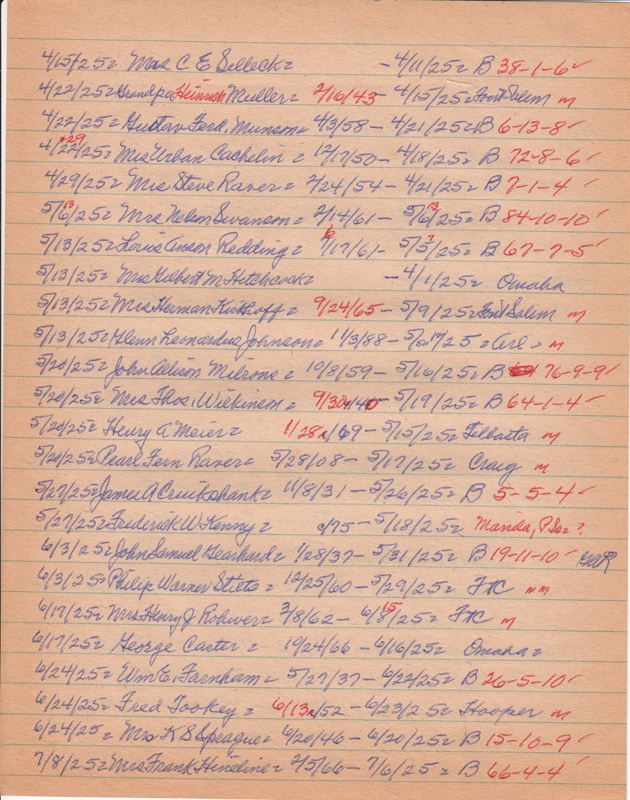 4/15/25= Mrs C E Selleck= -4/11/25= B 38-1-6✓
4/22/25= Grandpa Heinrich Muller= 2/16/43- 4/15/25= Font Salem m
4/22/25= Gustav Ferd. Munson= 4/3/58- 4/21/25= B 6-13-8✓
4/22/25= +29 Mrs Urban Cachelin= 12/17/50- 4/18/25= B 72-8-6✓
4/29/25= Mrs Steve Raver= 2/24/54- 4/21/25= B 7-1-4✓
5/6/25= 13 Mrs Nelson Swanson= 2/14/61- 5/6/25= B 84-10-10✓
5/13/25= Louis Anson Redding= 6/17/61- 5/5/25= B 67-7-5✓
5/13/25= Mrs Gilbert M. Hitchcock= -4/1/25= Omaha
5/13/25= Mrs Herman Kirkhoff= 9/24/65- 5/9/25= Font Salem m
5/13/25= Glenn Leonardus Johnson= 11/3/88- /25= Arl m
5/20/25= John Allison = 10/8/59- 5/16/25= B 76-9-9✓
5/20/25= Mrs Thos. Wilkinson= 9/30/40- 5/19/25= B 64-1-4✓
5/20/25= Henry A Meier= 11/28/69- 5/15/25= m
5/20/25= Pearl Fern Raver= 5/28/08- 5/17/25= Craig m
5/27/25= James A Cruikshank= 11/8/31- 5/26/25= B 5-5-4✓
5/27/25= Frederick W. Kenny= /75- 5/18/25= ?
6/3/25= John Samuel Gearhard= 1/28/37- 5/31/25= B 19-11-10✓ GAR
6/3/25= Philip Warner Stitts= 12/25/60- 5/29/25= FtC nm
6/17/25= Mrs Henry J. Rohwer= 3/8/62- 6/8/25= 15 FtC m
6/17/25= George Carter= 10/24/66- 6/16/25= Omaha=
6/24/25= Wm E. Farnham= 5/27/37- 6/22/25= B 26-5-10✓
6/24/25= Fred Tookey= 6/13/52- 6/23/25= Hooper m
6/24/25= Mrs K S Sprague= 6/20/46- 6/20/25= B 15-10-9✓
7/8/25= Mrs Frank Hineline= 2/5/66- 7/6/25= B 66-4-4✓